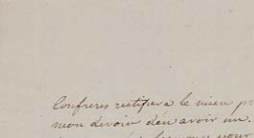 Confreres rectifiera le mien pr
mon devoir d'en avoir un.
pour